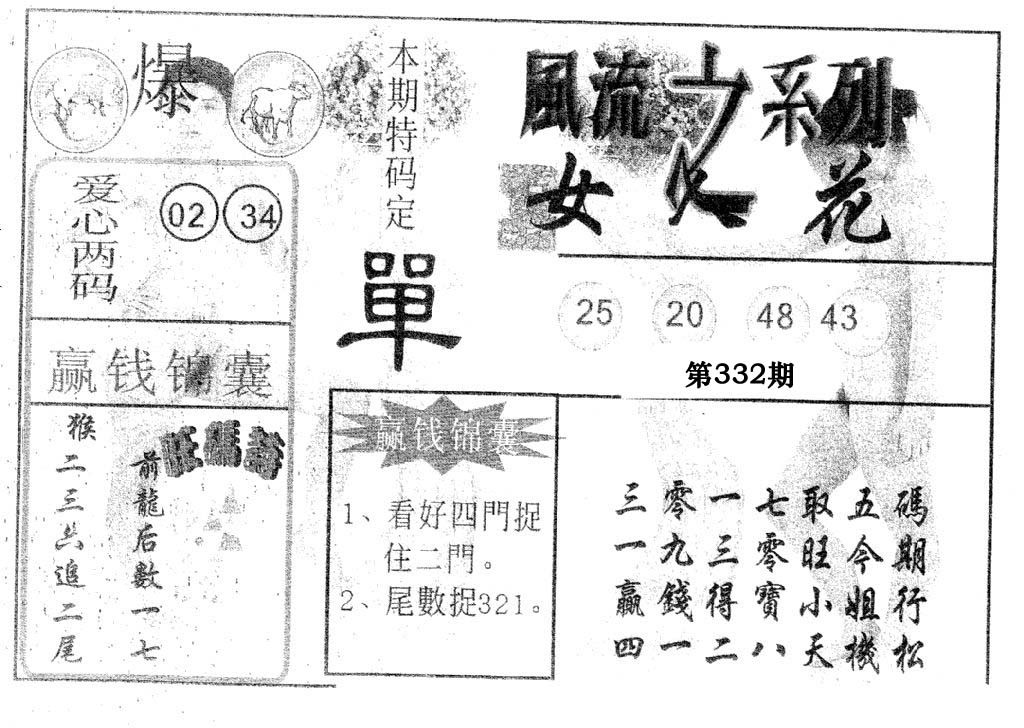 爆
本期特码定
單
風流之系列
女人花
爱心两码
02 34
25 20 48 43
第332期
赢钱锦囊
猴二三共追二尾
前龍后數一七
赢钱锦囊
1、看好四門捉
住二門。
2、尾數捉321。
三零一七取五碼
一九三零旺今期
赢錢得寶小姐行
四一二八天機松